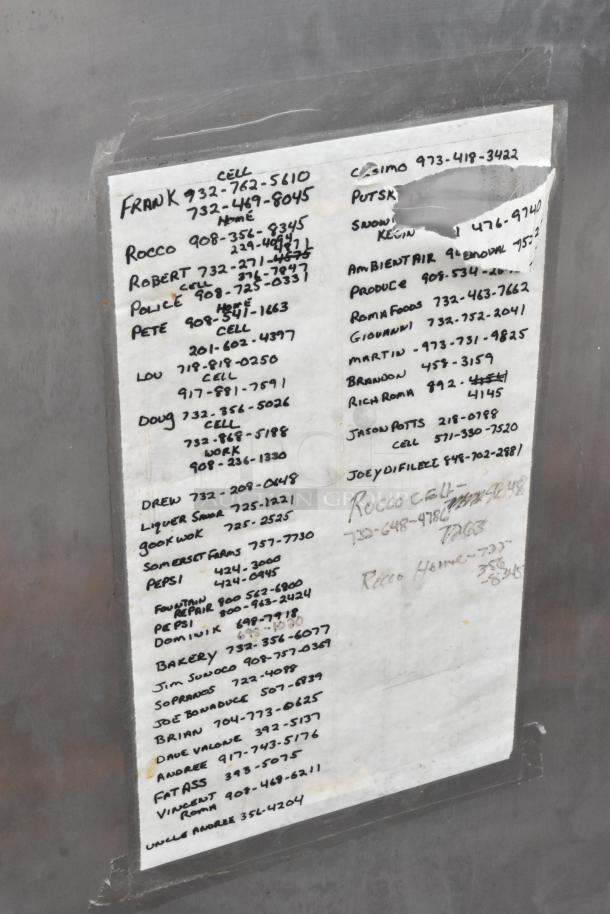 CELL
FRANK 932-762-5610
732-469-8045
HOME
ROCCO 908-356-8345
229-4094
4871
ROBERT 732-271-4575
CELL 376-7847
POLICE 908-725-0331
HOME
PETE 908-541-1663
CELL
201-602-4397
LOU 718-818-0250
CELL
917-881-7591
DOUG 732-356-5026
CELL
732-868-5188
WORK
908-236-1330
DREW 732-208-0648
LIQUER SAVOR 725-1221
GOOK WOK 725-2525
SOMERSET FARMS 757-7730
PEPSI 424-3000
424-0945
FOUNTAIN REPAIR 800 562-6800
PEPSI 800-963-2424
DOMINIK 698-7918
698-1020
BAKERY 732-356-6077
JIM SUNOCO 908-757-0369
SOPRANOS 722-4088
JOE BONADUCE 507-6839
BRIAN 704-773-0625
DAVE VALONE 392-5137
ANDREE 917-743-5176
FATASS 393-5075
VINCENT 908-468-6211
ROMA
UNCLE ANDREE 356-4204
COSIMO 973-418-3422
PUTSK
SNOW
KEVIN 476-9740
REMOVAL
AMBIENT AIR
PRODUCE 908-534-
ROMA FOODS 732-463-7662
GIOVANNI 732-752-2041
MARTIN - 973-731-9825
BRANDON 458-3159
RICH ROMA 892-4154
4145
JASON POTTS 218-0788
CELL 571-330-7520
JOEY DIFILECI 848-702-2881
ROCCO CELL-
732-648-4786
7263
Rocco Home - 732-
356
-8345
AUCTION GROUP